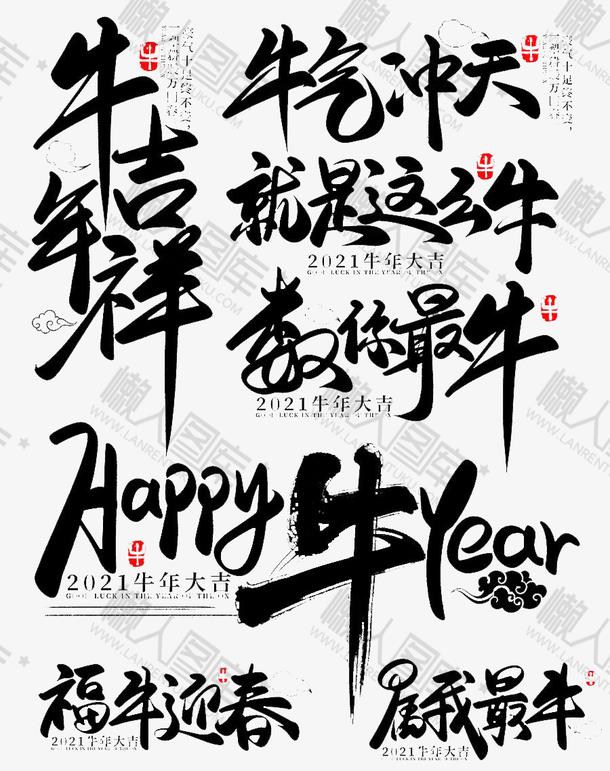 牛年吉祥
牛
豪气十足终不变，
牛气冲天
牛
豪气十足终不变，
就是这么牛
牛
2021牛年大吉
GOOD LUCK IN THE YEAR OF THE OX
数你最牛
牛
2021牛年大吉
GOOD LUCK IN THE YEAR OF THE OX
Happy牛Year
牛
2021牛年大吉
GOOD LUCK IN THE YEAR OF THE OX
福牛迎春
牛
2021牛年大吉
属我最牛
牛
2021牛年大吉
懒人图库